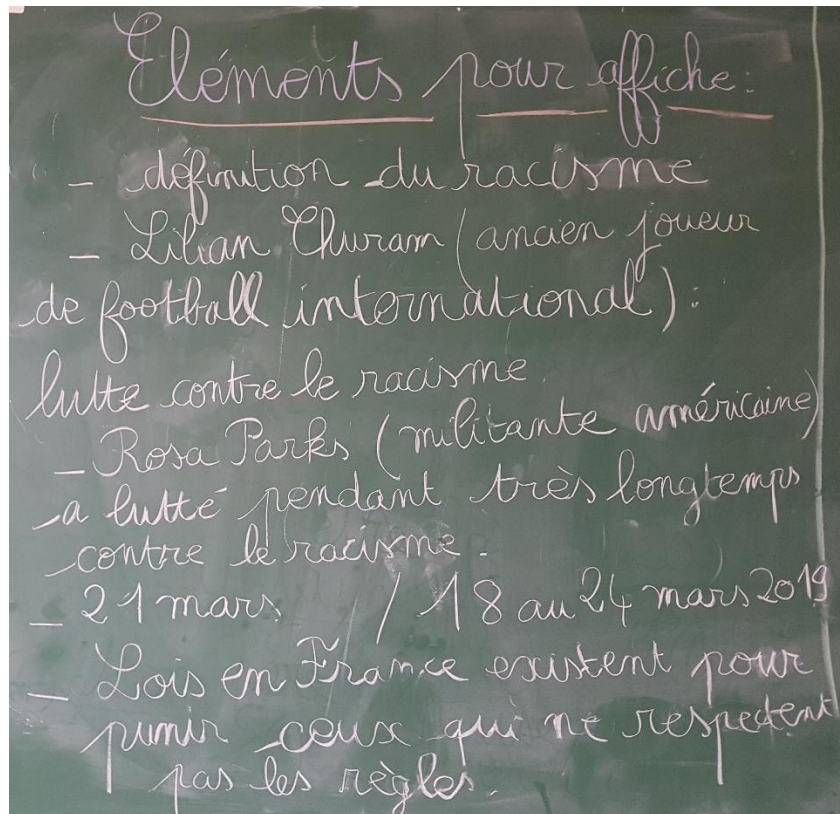 Eléments pour affiche :
- définition du racisme
- Lilian Thuram (ancien joueur
de football international) :
lutte contre le racisme.
- Rosa Parks (militante américaine)
a lutté pendant très longtemps
contre le racisme.
- 21 mars / 18 au 24 mars 2019
- Lois en France existent pour
punir ceux qui ne respectent
pas les règles.